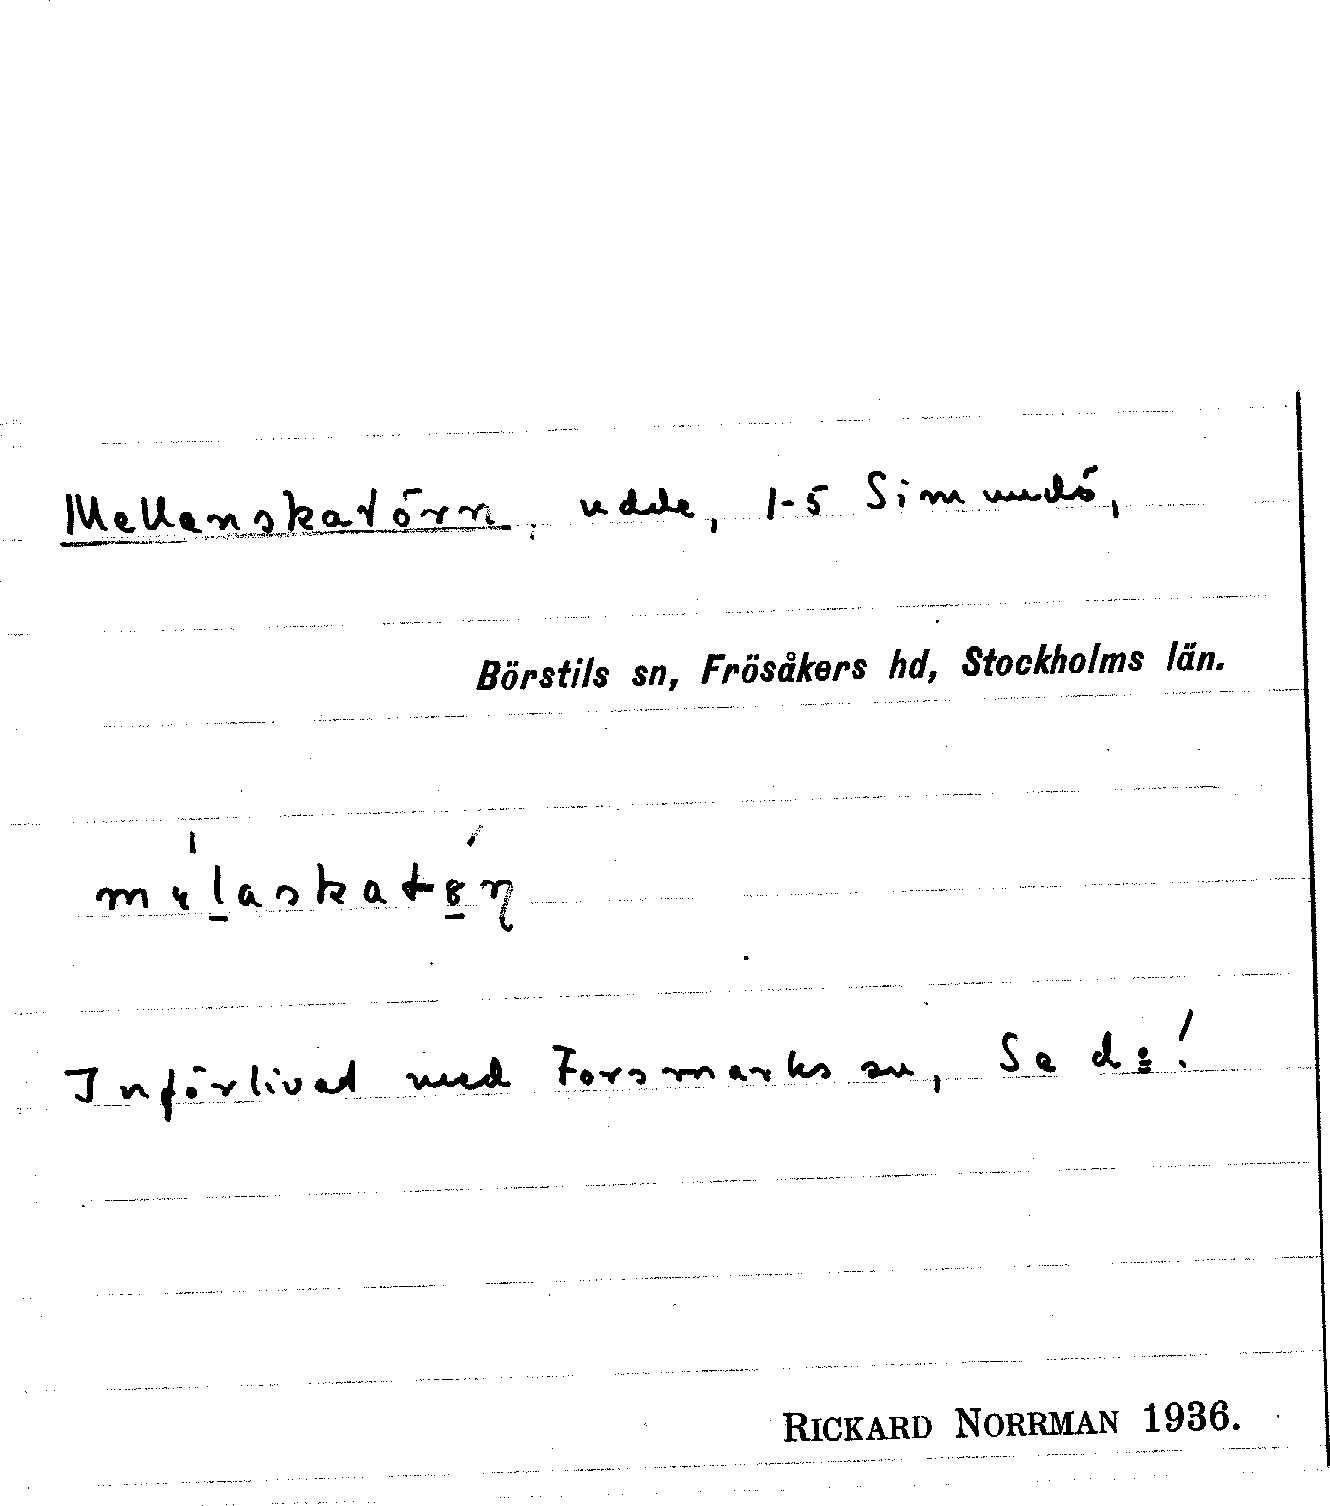 Mellanskatörn, udde, 1-5 Simundö,
Börstils sn, Frösåkers hd, Stockholms län.
Införlivad med Forsmarks sn, Se do!
RICKARD NORRMAN 1936.